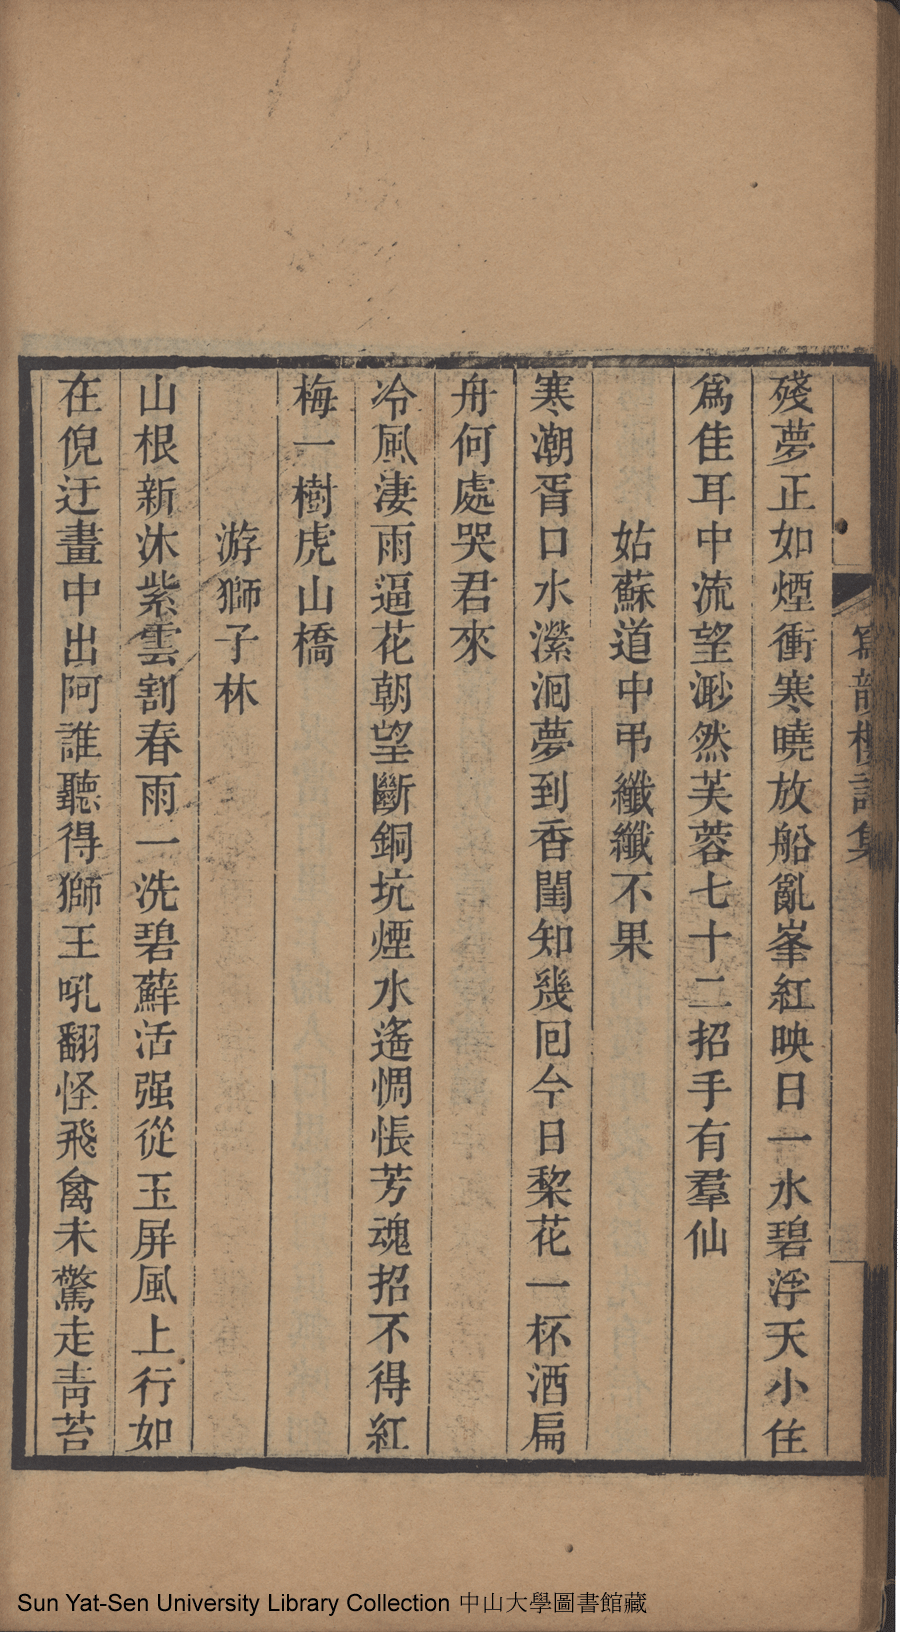 殘夢正如煙衝寒曉放船亂峯紅映日一水碧浮天小住
爲佳耳中流望渺然芙蓉七十二招手有羣仙
姑蘇道中弔纖纖不果
寒潮胥口水瀠洄夢到香閨知幾回今日棃花一杯酒扁
舟何處哭君來
冷風淒雨逼花朝望斷銅坑煙水遙惆悵芳魂招不得紅
梅一樹虎山橋
游獅子林
山根新沐紫雲割春雨一洗碧蘚活强從玉屏風上行如
在倪迂畫中出阿誰聽得獅王吼翻怪飛禽未驚走靑苔
寫韻樓詩集
Sun Yat-Sen University Library Collection 中山大學圖書館藏